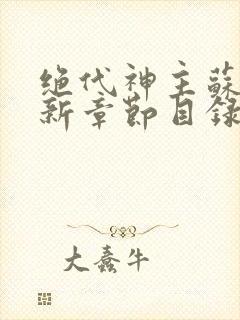 绝代神主蘇
新章節目錄
大蠢牛